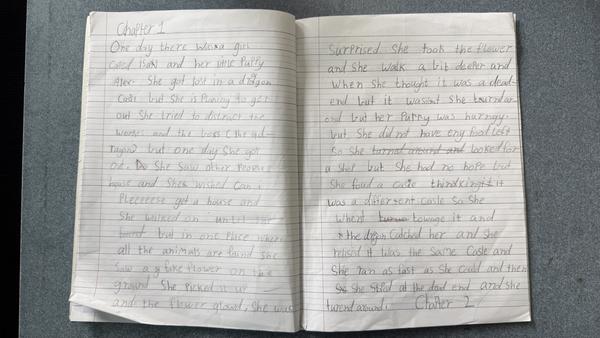 Chapter 1
One day there was a girl
Caled and her little Puppy
Alex. She got lost in a dragon
Casle but she is planing to get
out She tried to distract the
and the boss (the yd-
ragon) but one day She got
out. She Saw other
house and She wished Can i
Pleeeeese get a house and
She walked on until the
but in one Place where
all the animals are found She
Saw a flower on the
ground She Picked it up
and the flower glowd, She was
Surprised. She took the flower
and She walk a bit deeper and
When She thought it was a dead-
end but it wasunt She tournd ar-
ond but her Puppy was hurngy.
but She did not have eny food left
So She turned around and looked for
a Shop but She had no hope but
She foud a Casle thindking it it
was a different Casle So She
When towage it and
the dragon Catched her and She
relised it was the Same Casle and
She ran as fast as She Could and then
She Stped at the dead end and She
turend around. Chapter 2